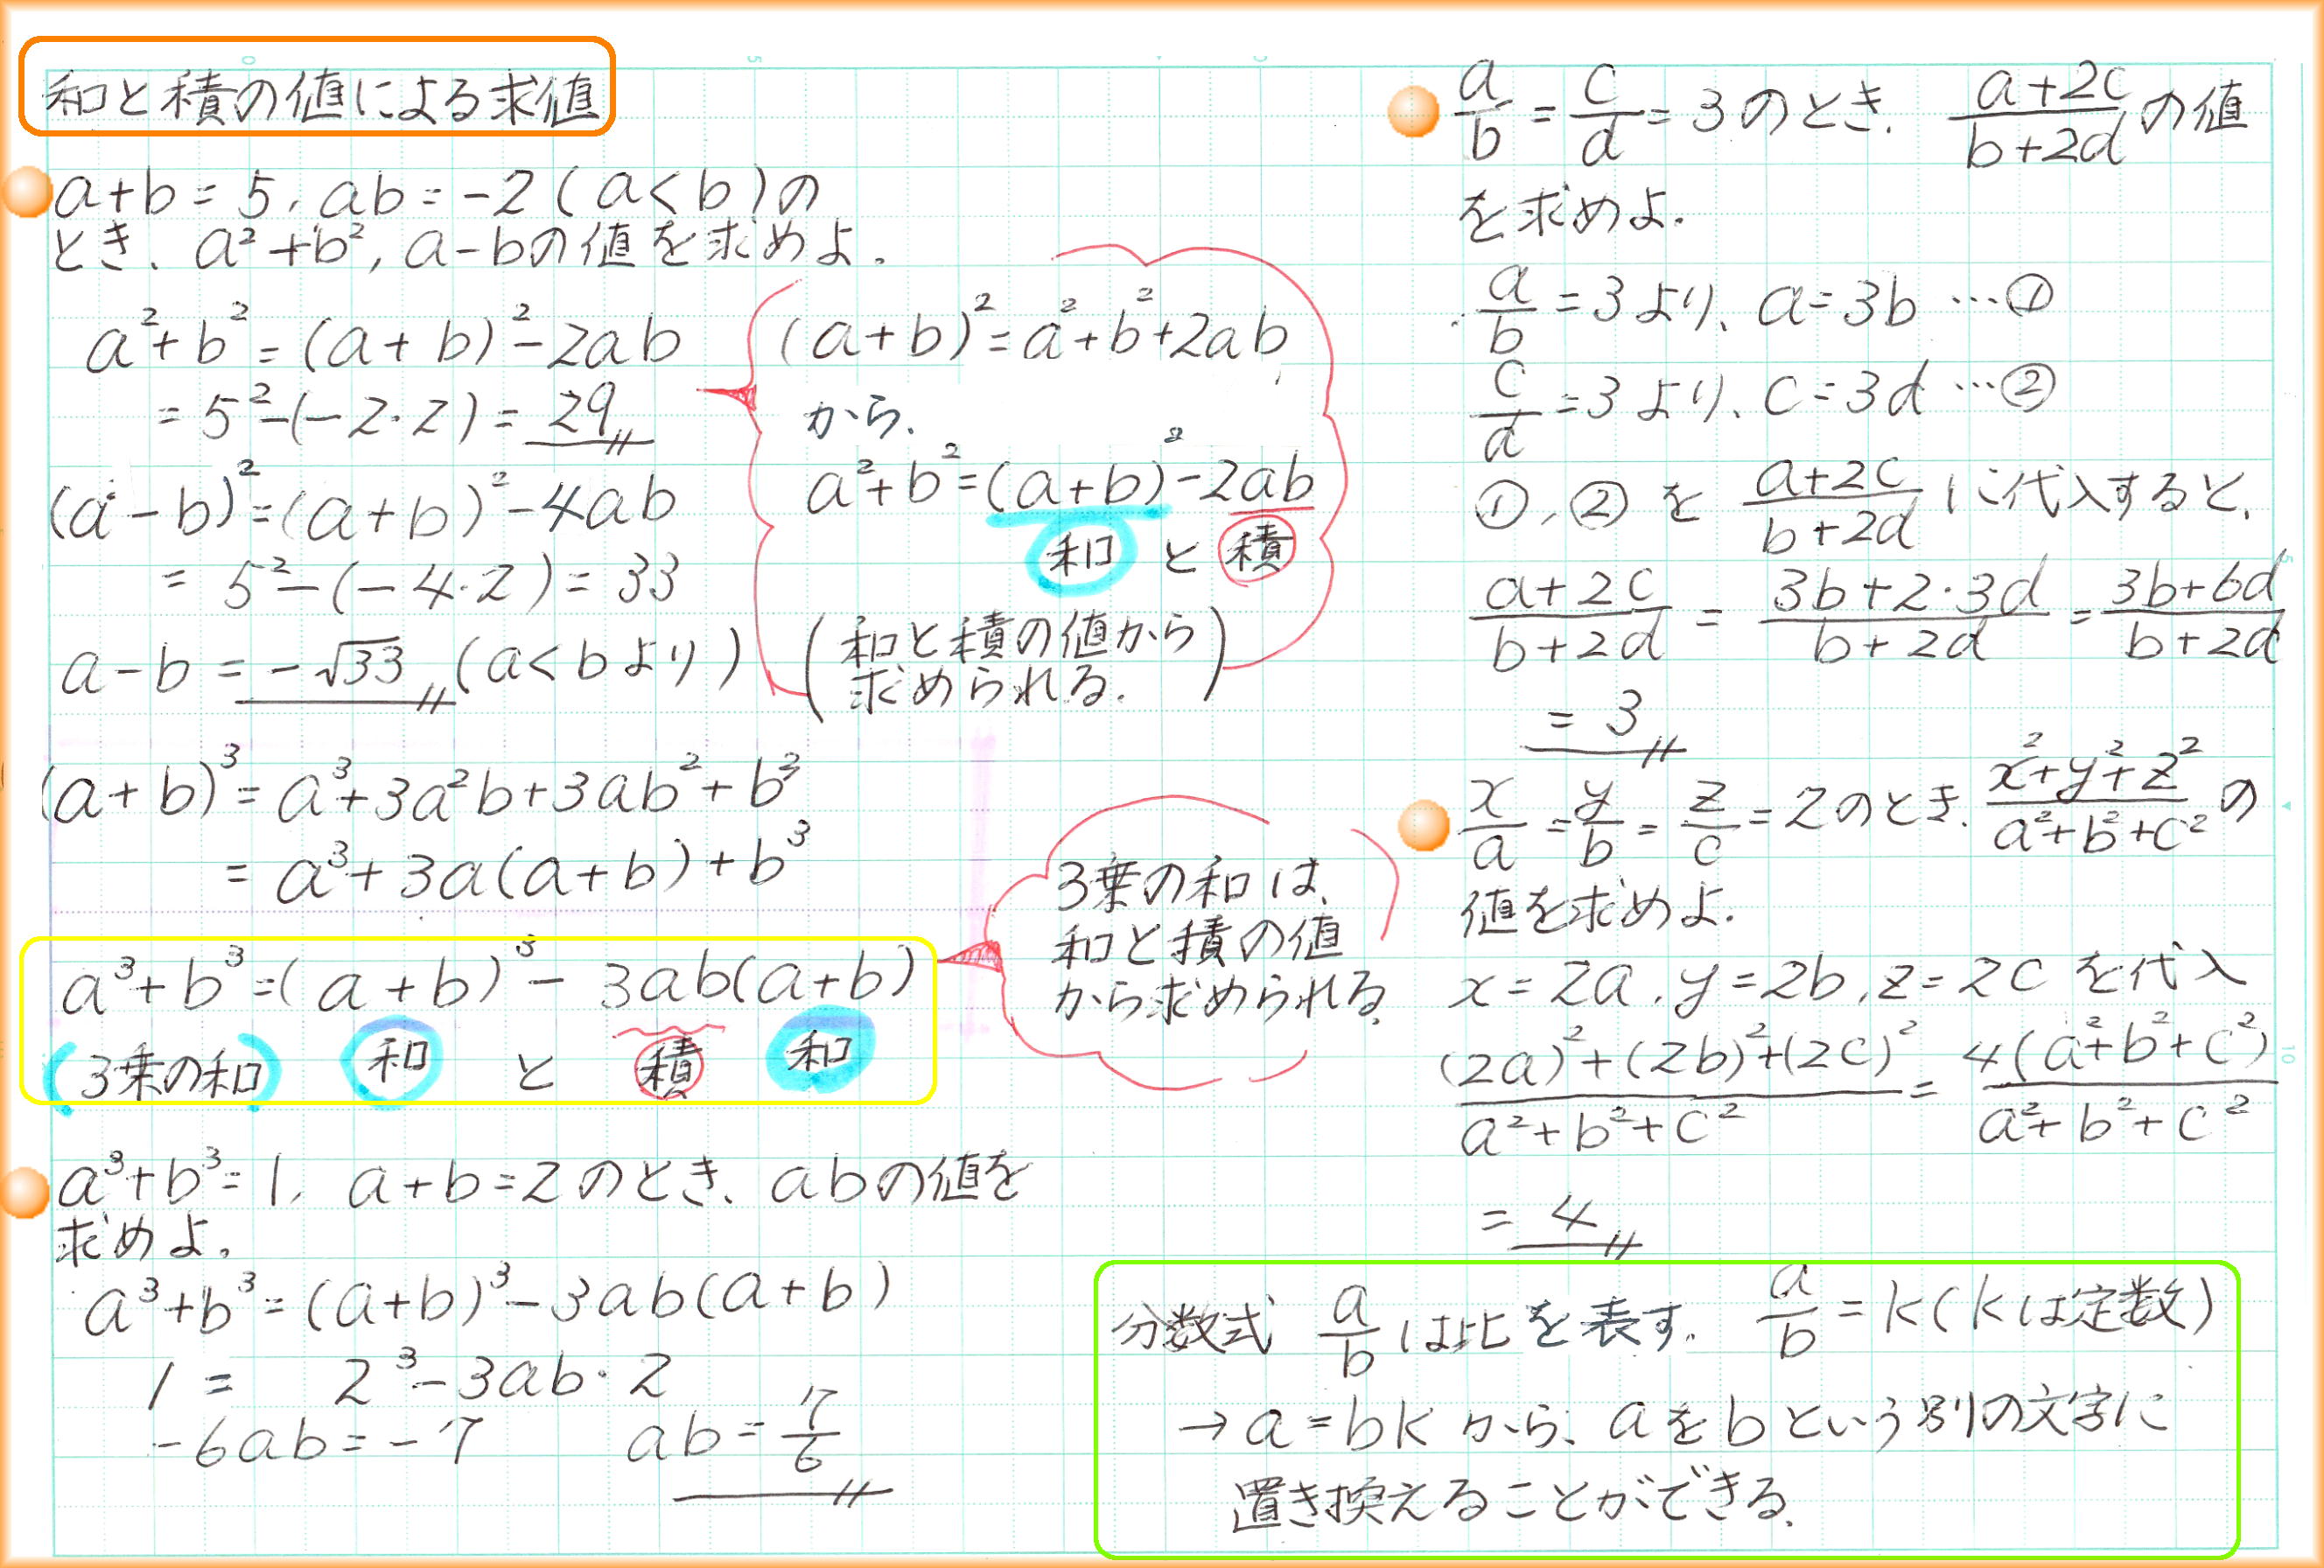 和と積の値による求値
a+b=5, ab=-2 (a<b)の
とき、a²+b², a-bの値を求めよ.
a²+b²=(a+b)²-2ab
=5²-(-2・2)=29
(a-b)²=(a+b)²-4ab
=5²-(-4・2)=33
a-b=-√33 (a<bより)
(a+b)²=a²+b²+2ab
から.
a²+b²=(a+b)²-2ab
和 と 積
(和と積の値から
求められる.)
(a+b)³=a³+3a²b+3ab²+b³
=a³+3a(a+b)+b³
a³+b³=(a+b)³-3ab(a+b)
(3乗の和) 和 と 積 和
3乗の和は、
和と積の値
から求められる.
a³+b³=1, a+b=2のとき、abの値を
求めよ。
a³+b³=(a+b)³-3ab(a+b)
1= 2³-3ab・2
-6ab=-7 ab=7/6
a/b=c/d=3のとき、(a+2c)/(b+2d)の値
を求めよ.
a/b=3より、a=3b …①
c/d=3より、c=3d …②
①、②を(a+2c)/(b+2d)に代入すると、
(a+2c)/(b+2d)=(3b+2・3d)/(b+2d)=(3b+6d)/(b+2d)
=3
x/a=y/b=z/c=2のとき、(x²+y²+z²)/(a²+b²+c²)の
値を求めよ.
x=2a, y=2b, z=2cを代入
((2a)²+(2b)²+(2c)²)/(a²+b²+c²)=4(a²+b²+c²)/(a²+b²+c²)
=4
分数式 a/bは比を表す. a/b=k(kは定数)
→a=bkから、aをbという別の文字に
置き換えることができる.